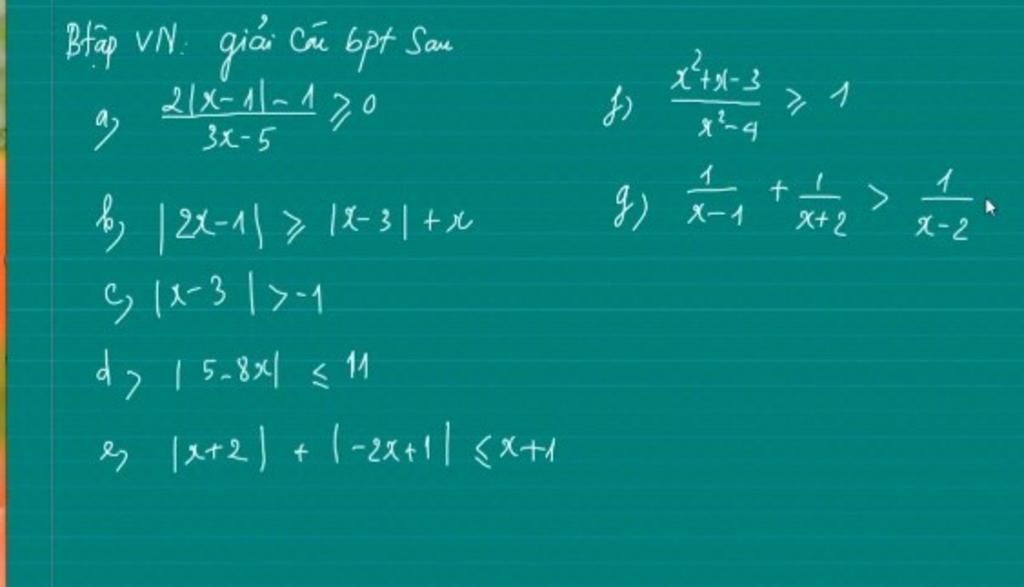 Btập VN: giải các bpt sau
a, (2|x-1|-1)/(3x-5) ⩾ 0
b, |2x-1| ⩾ |x-3| + x
c, |x-3| > -1
d, |5-8x| ⩽ 11
e, |x+2| + |-2x+1| ⩽ x+1
f) (x²+x-3)/(x²-4) ⩾ 1
g) 1/(x-1) + 1/(x+2) > 1/(x-2)